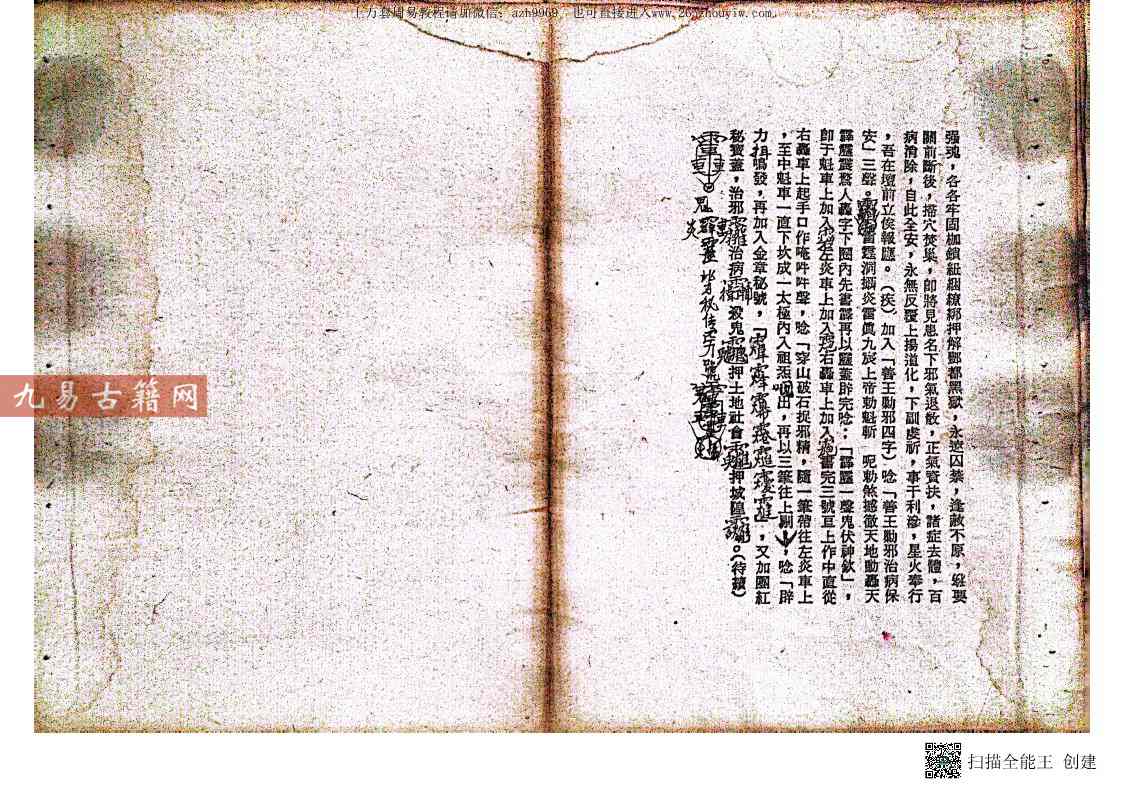 上万套周易教程请加微信：azh9969，也可直接进入www.265zhouyiw.com
强魂，各各牢固枷鎖紐綑繚綁押解酆都黑獄，永遠囚禁，逢赦不原，毉要
關前斷後，搭穴焚巢，即將見患名下邪氣退散，正氣資扶，諸症去體，百
病消除，自此全安，永無反覆上揚道化，下副虔祈，事干利濟，星火奉行
，吾在壇前立俟報應。（疾）加入「善王勦邪四字）唸「善王勦邪治病保
安」三聲。雷霆洞攝炎雷眞九宸上帝勅魁斬　呢勅煞撼徹天地動轟天
霹靂震驚人轟字下圈內先書霹再以靂蓋辟完唸：「霹靂一聲鬼伏神欽」，
卽于魁車上加入左炎車上加入右轟車上加入書完三號亘上作中直從
右轟車上起手口作唵吽吽聲，唸「穿山破石捉邪精，隨一筆帶往左炎車上
，至中魁車一直下坎成一太極內入祖炁唱出，再以三筆往上剔，唸「辟
力扭鳴發，再加入金章秘號，「」，又加團紅
秘寶蓋，治邪治病殺鬼押土地社會押城隍。（待續）
鬼
炎
九易古籍网
扫描全能王 创建